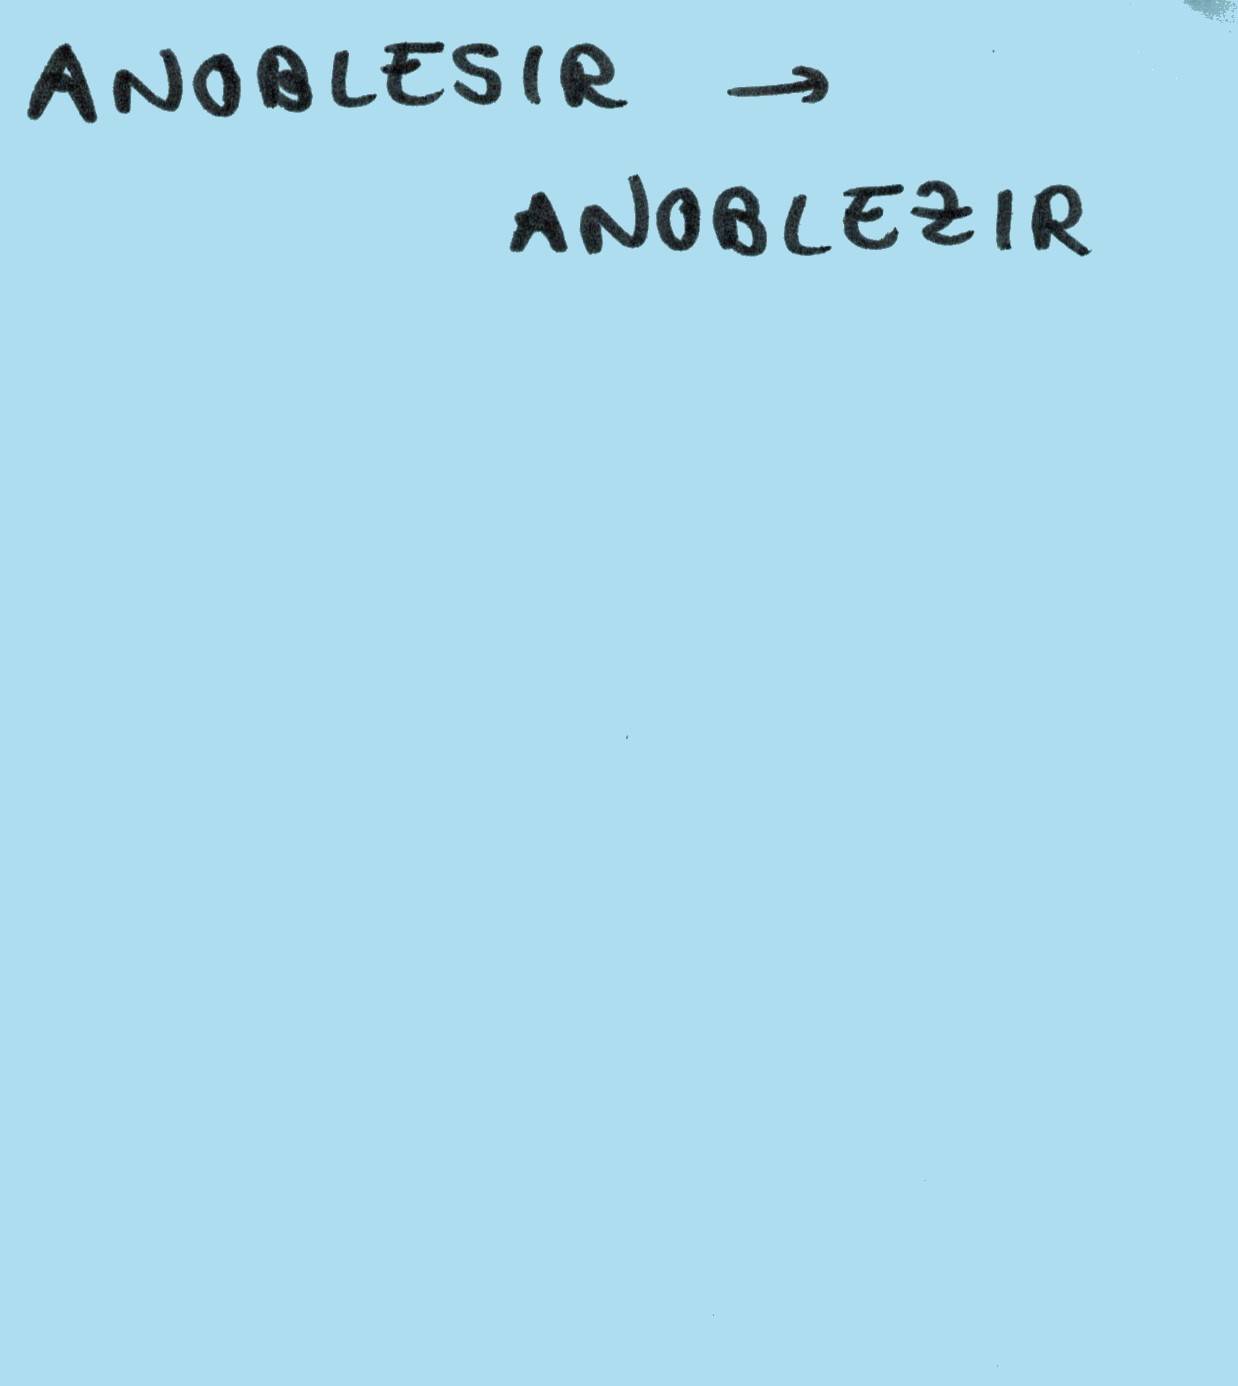 ANOBLESIR →
ANOBLEZIR